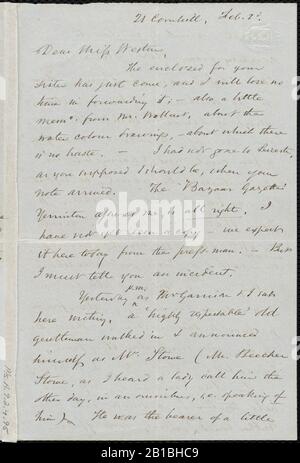 21 Cornhill, Feb. 2d.
Dear Miss Weston,
The enclosed for your
sister has just come, and I will lose no
time in forwarding it; – also a little
memo. from Mr. Wallcut, about the
water colour drawings, – about which there
is no haste. – I had not gone to Leicester,
as you supposed I should be, when your
note arrived. The "Bazaar Gazette"
Yerrinton assures me is all right. I
have not yet seen a copy – we expect
it here today from the press-man. – But
I must tell you an incident.
Yesterday p.m. as Mr Garrison & I sat
here writing, a highly respectable old
gentleman walked in & announced
himself as Mr. Stowe (Mr. Beecher
Stowe, as I heard a lady call him the
other day, in an omnibus, speaking of
him). He was the bearer of a little
a
alamy
Image ID: 2B1BHC9
www.alamy.com